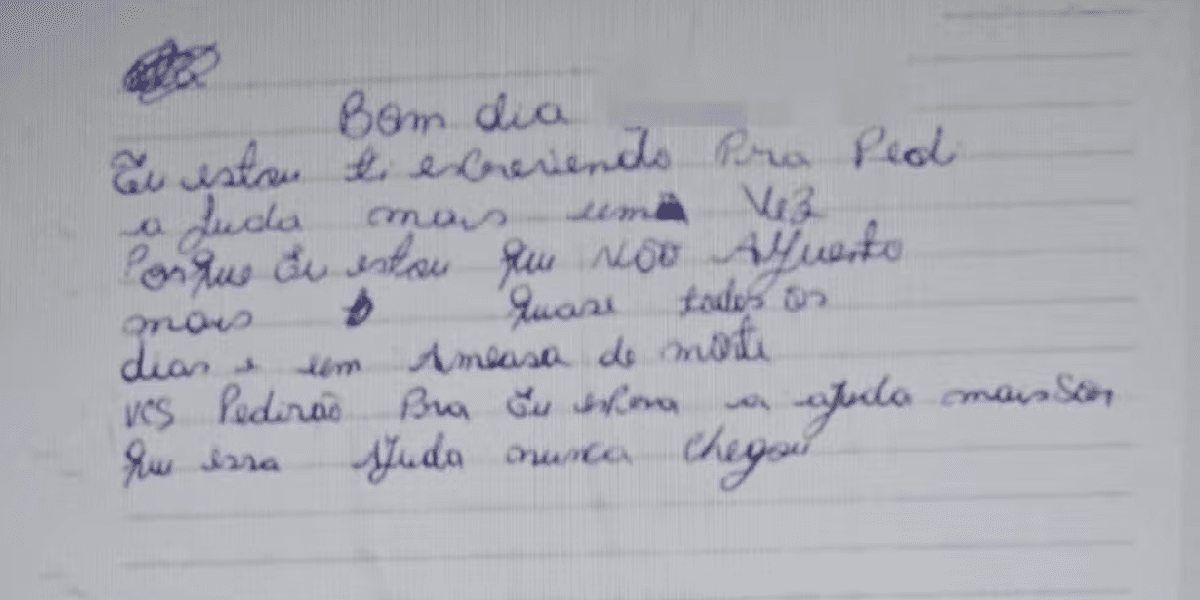 Bom dia
Eu estou ti escrevendo Pra Ped
a Juda mais uma Vez
Porque Eu estou que NÃO AJuento
mais quase todos os
dias e um Ameasa de morte
VCS Pedirão Pra Eu espera a ajuda mais
que essa AJuda nunca chegou